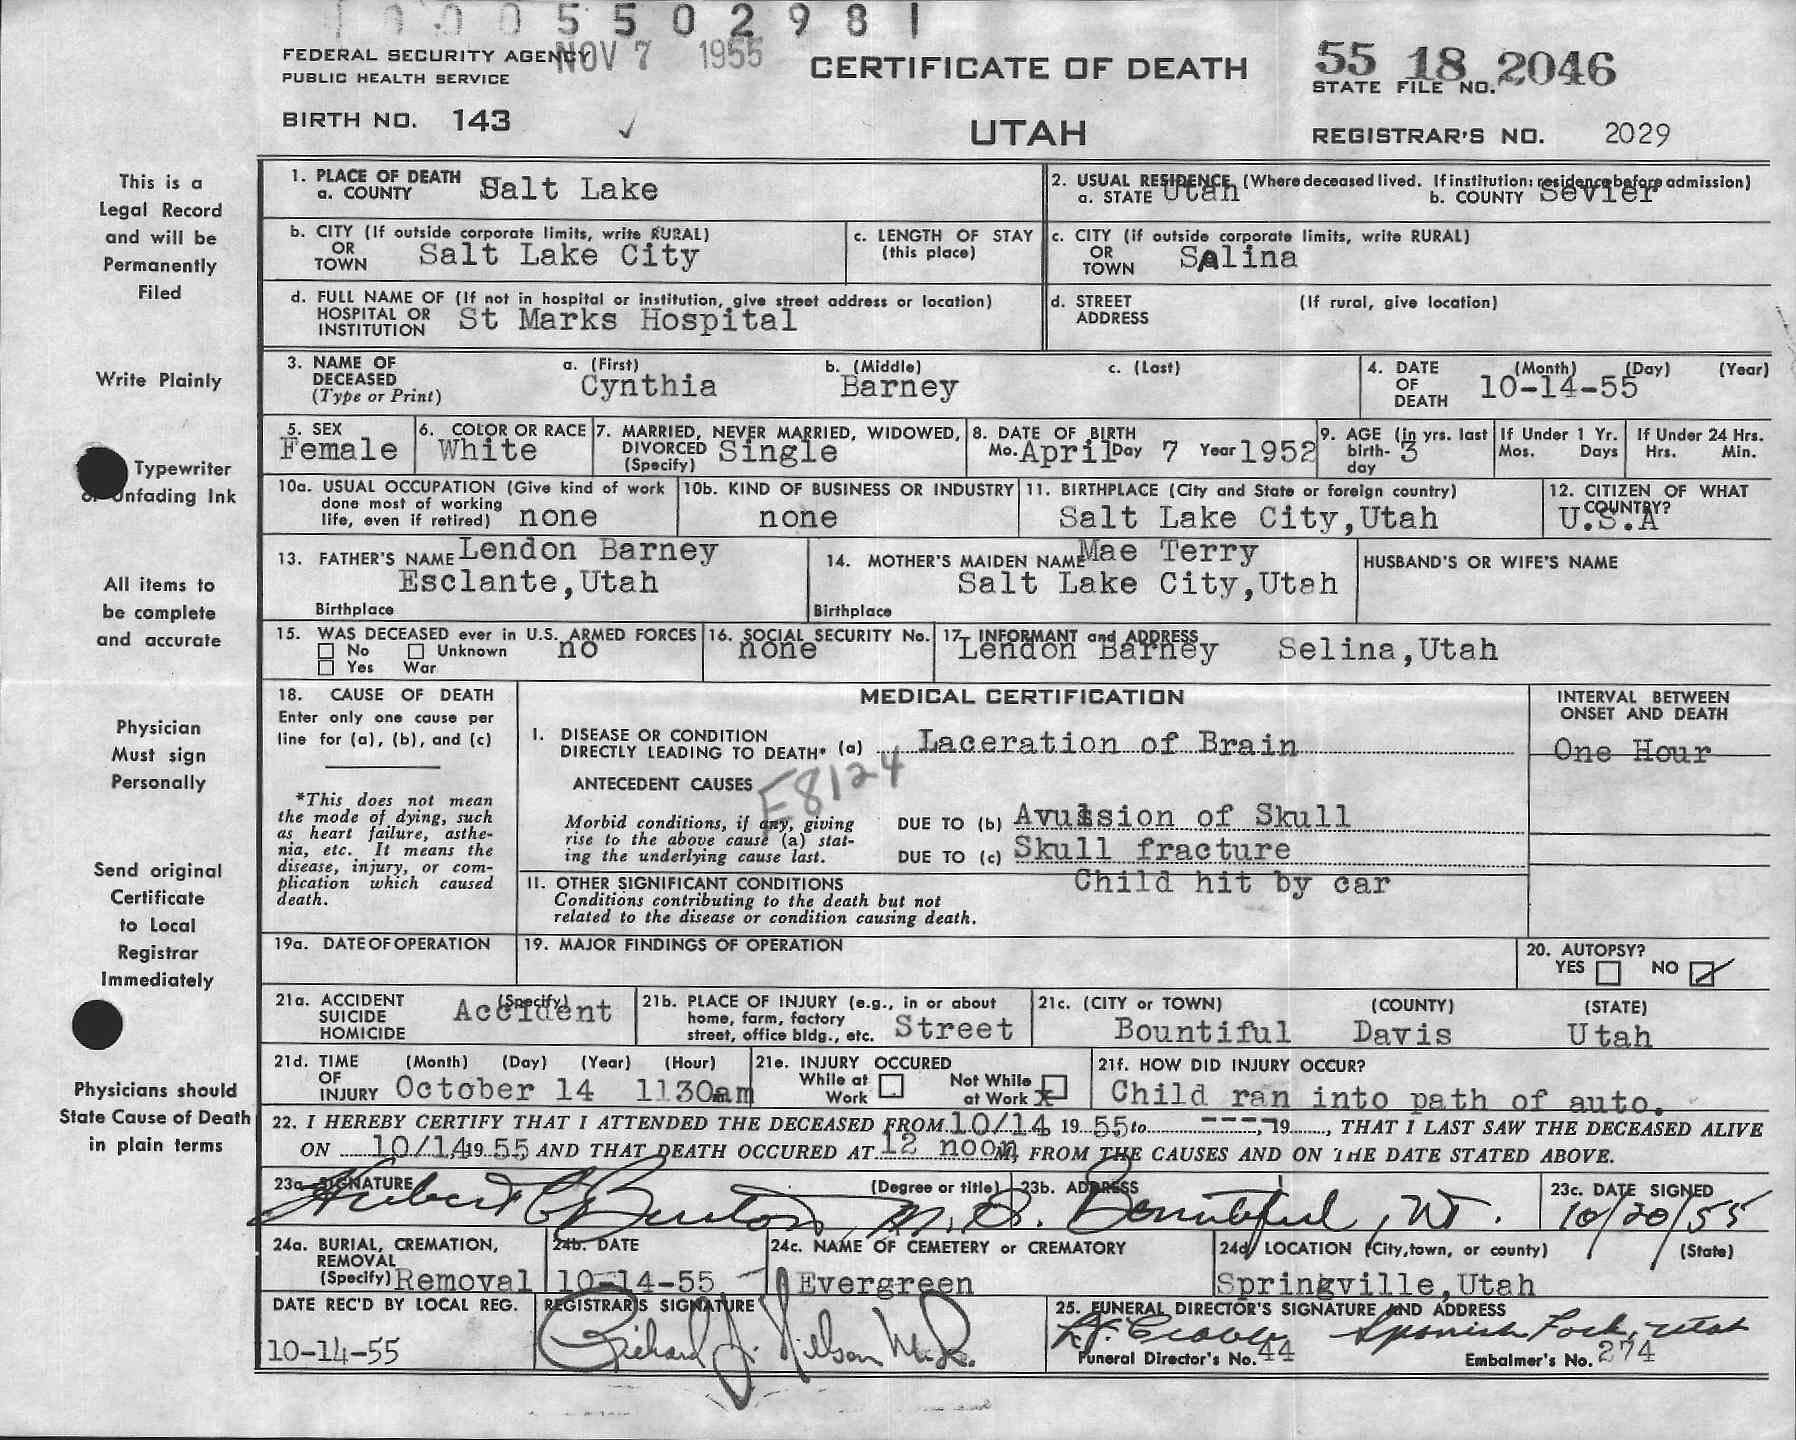 1 0 0 0 5 5 0 2 9 8 1
FEDERAL SECURITY AGENCY
PUBLIC HEALTH SERVICE
NOV 7 1955
CERTIFICATE OF DEATH
55 18 2046
STATE FILE NO.
BIRTH NO. 143 ✓
UTAH
REGISTRAR'S NO. 2029
This is a
Legal Record
and will be
Permanently
Filed
Write Plainly
Typewriter
or Unfading Ink
All items to
be complete
and accurate
Physician
Must sign
Personally
Send original
Certificate
to Local
Registrar
Immediately
Physicians should
State Cause of Death
in plain terms
1. PLACE OF DEATH
a. COUNTY Salt Lake
2. USUAL RESIDENCE (Where deceased lived. If institution: residence before admission)
a. STATE Utah b. COUNTY Sevier
b. CITY (If outside corporate limits, write RURAL)
OR
TOWN Salt Lake City
c. LENGTH OF STAY
(this place)
c. CITY (if outside corporate limits, write RURAL)
OR
TOWN SAlina
d. FULL NAME OF (If not in hospital or institution, give street address or location)
HOSPITAL OR
INSTITUTION St Marks Hospital
d. STREET (If rural, give location)
ADDRESS
3. NAME OF DECEASED
(Type or Print)
a. (First) b. (Middle) c. (Last)
Cynthia Barney
4. DATE OF DEATH
(Month) (Day) (Year)
10-14-55
5. SEX
Female
6. COLOR OR RACE
White
7. MARRIED, NEVER MARRIED, WIDOWED,
DIVORCED
(Specify) Single
8. DATE OF BIRTH
Mo. April Day 7 Year 1952
9. AGE (in yrs. last
birth-
day 3
If Under 1 Yr.
Mos. Days
If Under 24 Hrs.
Hrs. Min.
10a. USUAL OCCUPATION (Give kind of work
done most of working
life, even if retired) none
10b. KIND OF BUSINESS OR INDUSTRY
none
11. BIRTHPLACE (City and State or foreign country)
Salt Lake City,Utah
12. CITIZEN OF WHAT
COUNTRY?
U.S.A
13. FATHER'S NAME Lendon Barney
Esclante,Utah
Birthplace
14. MOTHER'S MAIDEN NAME Mae Terry
Salt Lake City,Utah
Birthplace
HUSBAND'S OR WIFE'S NAME
15. WAS DECEASED ever in U.S. ARMED FORCES
No Unknown no
Yes War
16. SOCIAL SECURITY No.
none
17. INFORMANT and ADDRESS
Lendon Barney Selina,Utah
18. CAUSE OF DEATH
Enter only one cause per
line for (a), (b), and (c)
*This does not mean
the mode of dying, such
as heart failure, asthe-
nia, etc. It means the
disease, injury, or com-
plication which caused
death.
MEDICAL CERTIFICATION
INTERVAL BETWEEN
ONSET AND DEATH
I. DISEASE OR CONDITION
DIRECTLY LEADING TO DEATH* (a) Laceration of Brain
One Hour
ANTECEDENT CAUSES
E8124
Morbid conditions, if any, giving
rise to the above cause (a) stat-
ing the underlying cause last.
DUE TO (b) Avulsion of Skull
DUE TO (c) Skull fracture
II. OTHER SIGNIFICANT CONDITIONS
Conditions contributing to the death but not
related to the disease or condition causing death.
Child hit by car
19a. DATE OF OPERATION
19. MAJOR FINDINGS OF OPERATION
20. AUTOPSY?
YES NO
21a. ACCIDENT
SUICIDE
HOMICIDE
(Specify)
Accident
21b. PLACE OF INJURY (e.g., in or about
home, farm, factory
street, office bldg., etc. Street
21c. (CITY or TOWN) (COUNTY) (STATE)
Bountiful Davis Utah
21d. TIME (Month) (Day) (Year) (Hour)
OF
INJURY October 14 1130am
21e. INJURY OCCURED
While at
Work
Not While
at Work x
21f. HOW DID INJURY OCCUR?
Child ran into path of auto.
22. I HEREBY CERTIFY THAT I ATTENDED THE DECEASED FROM 10/14 19 55 to ----, 19......, THAT I LAST SAW THE DECEASED ALIVE
ON 10/14 19 55 AND THAT DEATH OCCURED AT 12 noon M, FROM THE CAUSES AND ON THE DATE STATED ABOVE.
23a. SIGNATURE (Degree or title)
Hubert C Burton, M. D.
23b. ADDRESS
Bountiful, Ut.
23c. DATE SIGNED
10/20/55
24a. BURIAL, CREMATION,
REMOVAL
(Specify) Removal
24b. DATE
10-14-55
24c. NAME OF CEMETERY or CREMATORY
Evergreen
24d. LOCATION (City,town, or county) (State)
Springville,Utah
DATE REC'D BY LOCAL REG.
10-14-55
REGISTRAR'S SIGNATURE
Richard J. Nilson M.D.
25. FUNERAL DIRECTOR'S SIGNATURE AND ADDRESS
Spanish Fork, Utah
Funeral Director's No. 44
Embalmer's No. 274